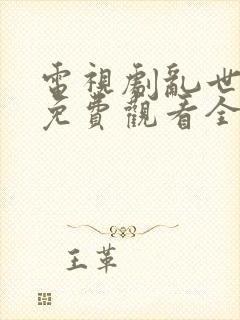 電視劇亂世
免費觀看全
王革